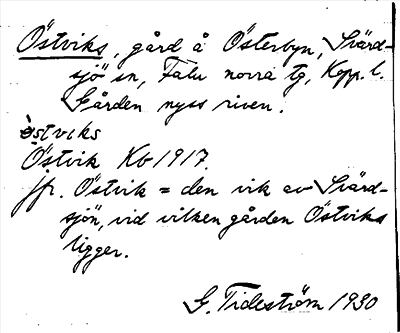 Östviks, gård å Österbyn, Svärd-
sjö sn, Falu norra tg, Kopp. l.
Gården nyss riven.
östviks
Östvik Kb 1917.
jfr. Östvik = den vik av Svärd-
sjön, vid vilken gården Östviks
ligger.
G. Tideström 1930